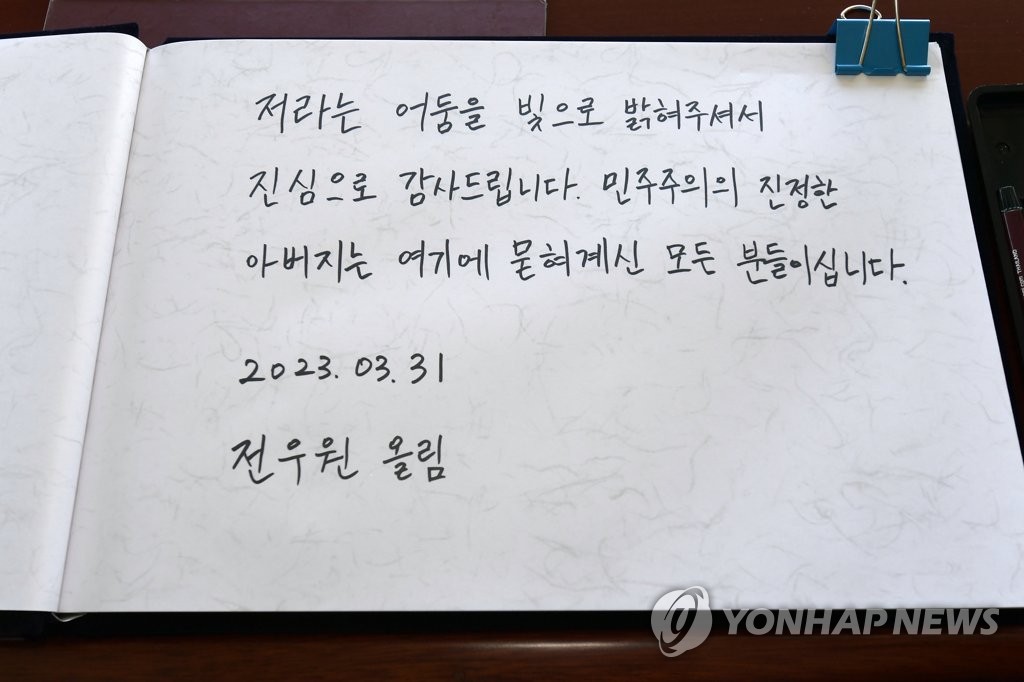 저라는 어둠을 빛으로 밝혀주셔서
진심으로 감사드립니다. 민주주의의 진정한
아버지는 여기에 묻혀계신 모든 분들이십니다.
2023. 03. 31
전우원 올림
YONHAP NEWS